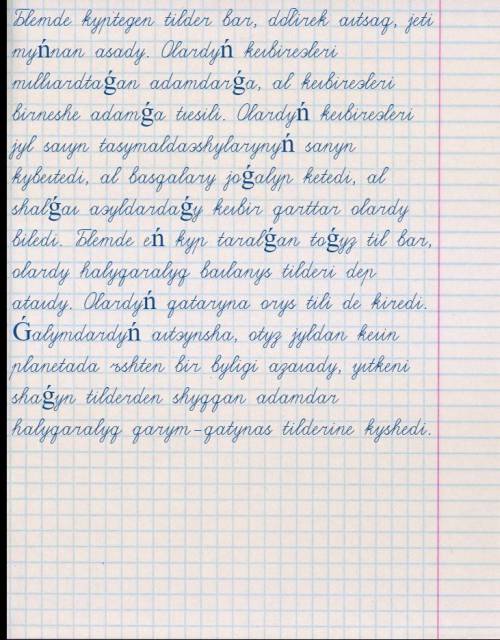 Бlemde kyptegen tilder bar, dбlirek aıtsaq, jeti
myńnan asady. Olardyń keıbireэleri
mıllıardtaǵan adamdarǵa, al keıbireэleri
birneshe adamǵa tıesili. Olardyń keıbireэleri
jyl saıyn tasymaldaэshylarynyń sanyn
kybeıtedi, al basqalary joǵalyp ketedi, al
shalǵaı aэyldardaǵy keıbir qarttar olardy
biledi. Бlemde eń kyp taralǵan toǵyz til bar,
olardy halyqaralyq baılanys tilderi dep
ataıdy. Olardyń qataryna orys tili de kiredi.
Ǵalymdardyń aıtэynsha, otyz jyldan keıin
planetada ъshten bir byligi azaıady, yıtkeni
shaǵyn tilderden shyqqan adamdar
halyqaralyq qarym-qatynas tilderine kyshedi.